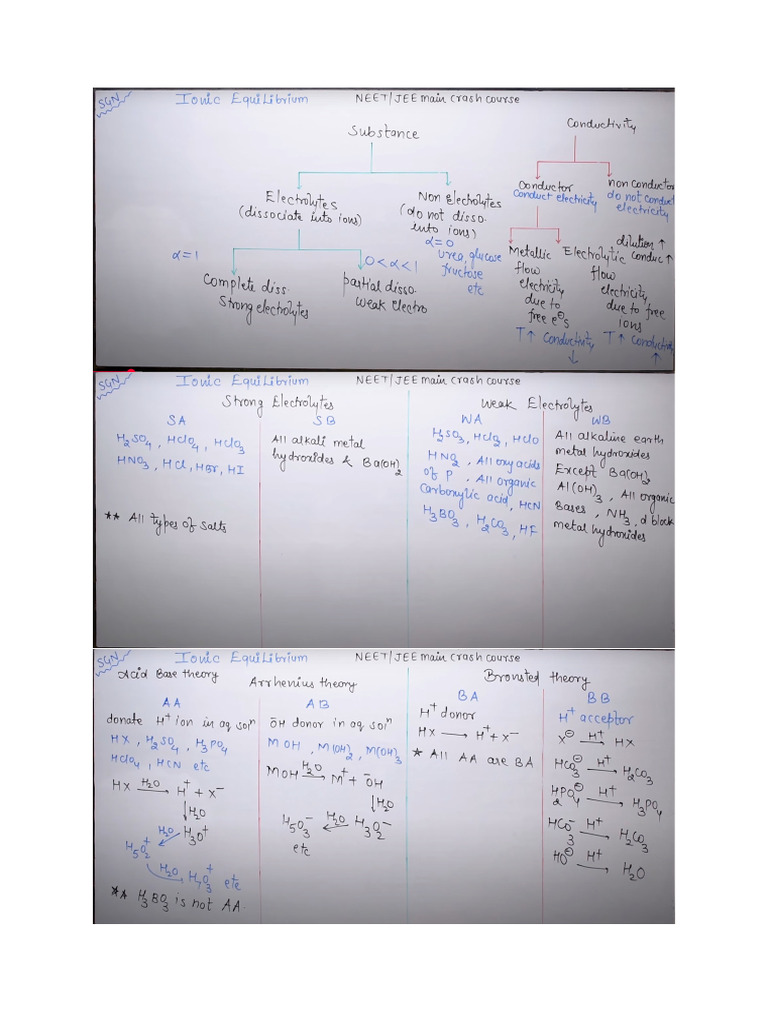 SGN
Ionic Equilibrium
NEET/JEE main crash course
Substance
Electrolytes
(dissociate into ions)
Non Electrolytes
(do not disso.
into ions)
α=0
urea, glucose
fructose
etc
α=1
Complete diss.
Strong electrolytes
0<α<1
partial disso.
weak electro
Conductivity
Conductor
Conduct electricity
non conductor
do not conduct
electricity
Metallic
flow
electricity
due to
free e⊖s
T↑ Conductivity
↓
dilution ↑
Electrolytic Conduc ↑
flow
electricity
due to free
ions
T↑ Conductivity
↑
SGN
Ionic Equilibrium
NEET/JEE main crash course
Strong Electrolytes
SA
H₂SO₄, HClO₄, HClO₃
HNO₃, HCl, HBr, HI
** All types of salts
SB
All alkali metal
hydroxides & Ba(OH)₂
Weak Electrolytes
WA
H₂SO₃, HClO₂, HClO
HNO₂, All oxyacids
of P, All organic
Carboxylic acid, HCN
H₃BO₃, H₂CO₃, HF
WB
All alkaline earth
metal hydroxides
Except Ba(OH)₂
Al(OH)₃, All organic
Bases, NH₃, d block
metal hydroxides
SGN
Ionic Equilibrium
NEET/JEE main crash course
Acid Base theory
Arrhenius theory
AA
donate H⁺ ion in aq solⁿ
HX, H₂SO₄, H₃PO₄
HClO₄, HCN etc
HX H₂O→ H⁺ + X⁻
↓H₂O
H₃O⁺
H₂O
H₅O₂⁺
H₂O H₇O₃⁺ etc
** H₃BO₃ is not AA.
AB
ŌH donor in aq solⁿ
MOH, M(OH)₂, M(OH)₃
MOH H₂O→ M⁺ + ŌH
↓H₂O
H₅O₃⁻ ←H₂O H₃O₂⁻
etc
Bronsted theory
BA
H⁺ donor
HX → H⁺ + X⁻
* All AA are BA
BB
H⁺ acceptor
X⊖ H⁺→ HX
HCO₃⊖ H⁺→ H₂CO₃
H₂PO₄⊖ H⁺→ H₃PO₄
HCO₃⁻ H⁺→ H₂CO₃
HO⊖ H⁺→ H₂O